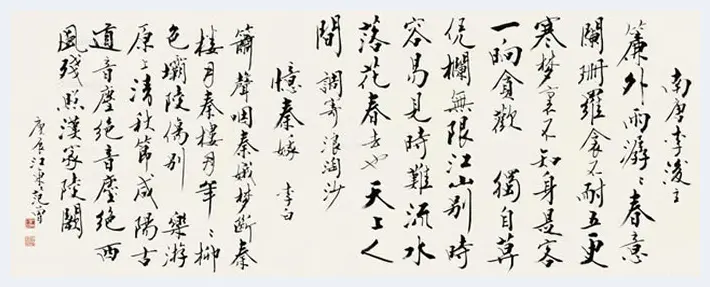 南唐李後主
簾外雨潺〻春意
闌珊羅衾不耐五更
寒夢裏不知身是客
一晌貪歡 獨自莫
凭欄無限江山別時
容易見時難流水
落花春去也天上人
間 調寄浪淘沙
憶秦娥 李白
簫聲咽秦娥夢斷秦
樓月秦樓月年〻柳
色灞陵傷別 樂游
原上清秋節咸陽古
道音塵絕音塵絕西
風殘照漢家陵闕
庚辰江東范曾